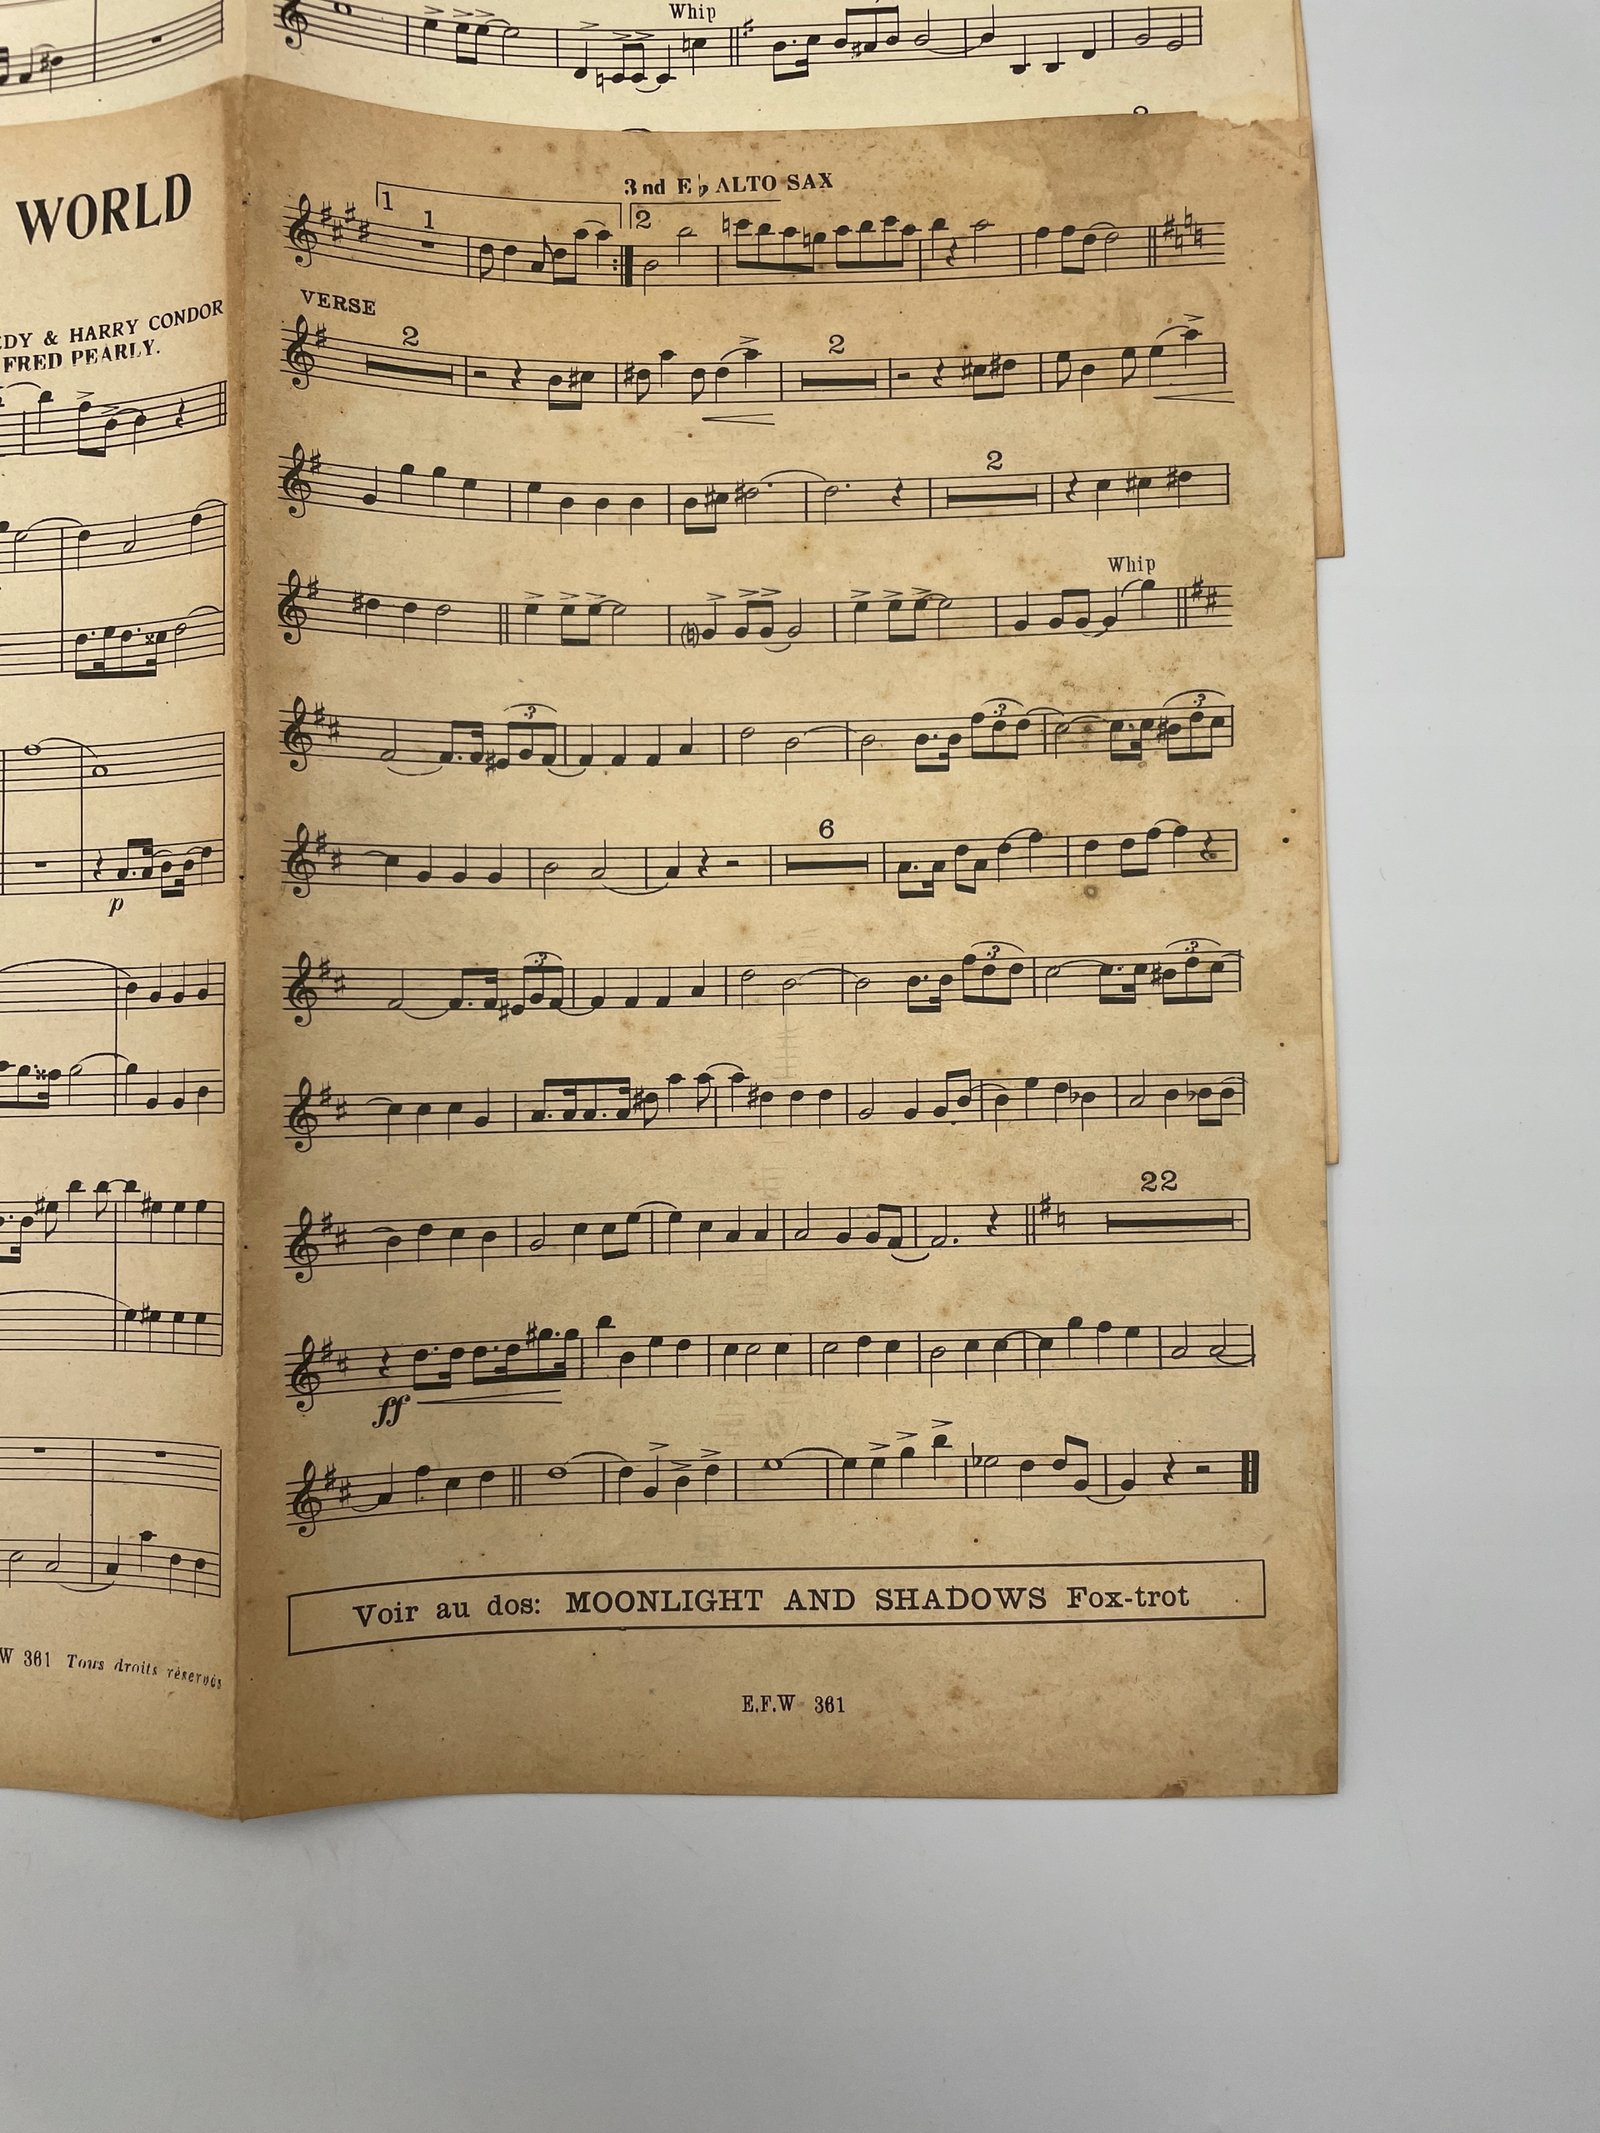 Whip
WORLD
3nd E♭ ALTO SAX
1
1
2
VERSE
& HARRY CONDOR
FRED PEARLY.
2
2
2
Whip
3
3
3
6
p
3
3
3
22
ff
Voir au dos: MOONLIGHT AND SHADOWS Fox-trot
W 361 Tous droits réservés
E.F.W 361